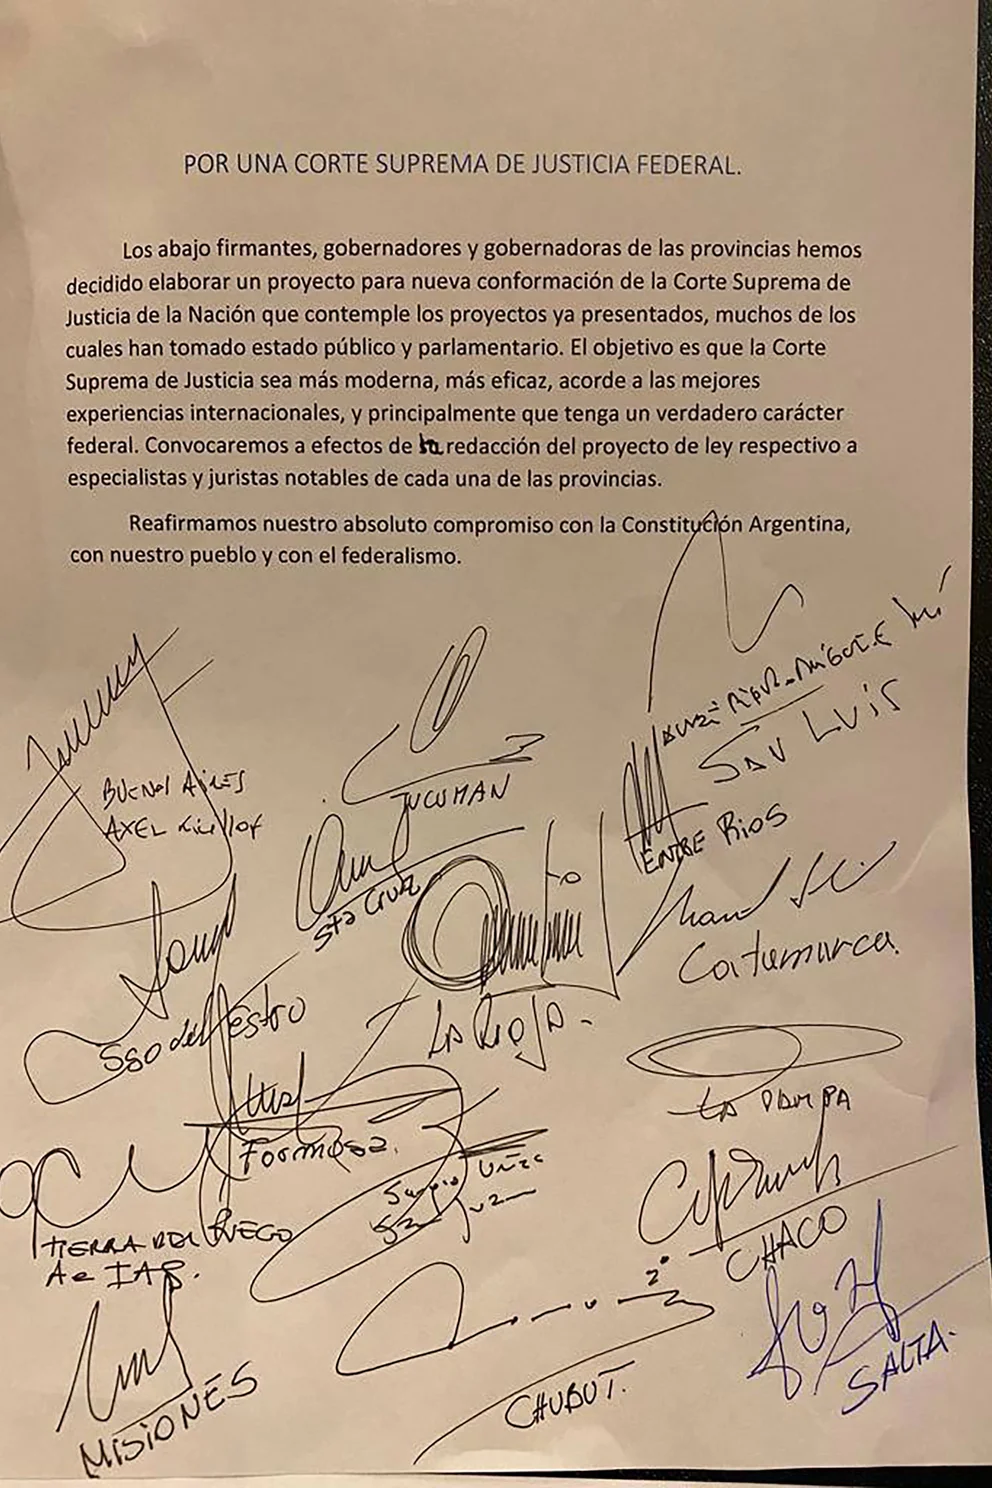 POR UNA CORTE SUPREMA DE JUSTICIA FEDERAL.
Los abajo firmantes, gobernadores y gobernadoras de las provincias hemos
decidido elaborar un proyecto para nueva conformación de la Corte Suprema de
Justicia de la Nación que contemple los proyectos ya presentados, muchos de los
cuales han tomado estado público y parlamentario. El objetivo es que la Corte
Suprema de Justicia sea más moderna, más eficaz, acorde a las mejores
experiencias internacionales, y principalmente que tenga un verdadero carácter
federal. Convocaremos a efectos de la redacción del proyecto de ley respectivo a
especialistas y juristas notables de cada una de las provincias.
Reafirmamos nuestro absoluto compromiso con la Constitución Argentina,
con nuestro pueblo y con el federalismo.
BUENOS AIRES
AXEL Kicillof
TUCUMAN
SAN LUIS
ENTRE RIOS
STA CRUZ
Catamarca.
SGO del Estro
LA RIOJA.
LA PAMPA
Formosa.
Sergio Uñac
San Juan
TIERRA DEL FUEGO
A e IAS.
CHACO
MISIONES
CHUBUT.
SALTA.